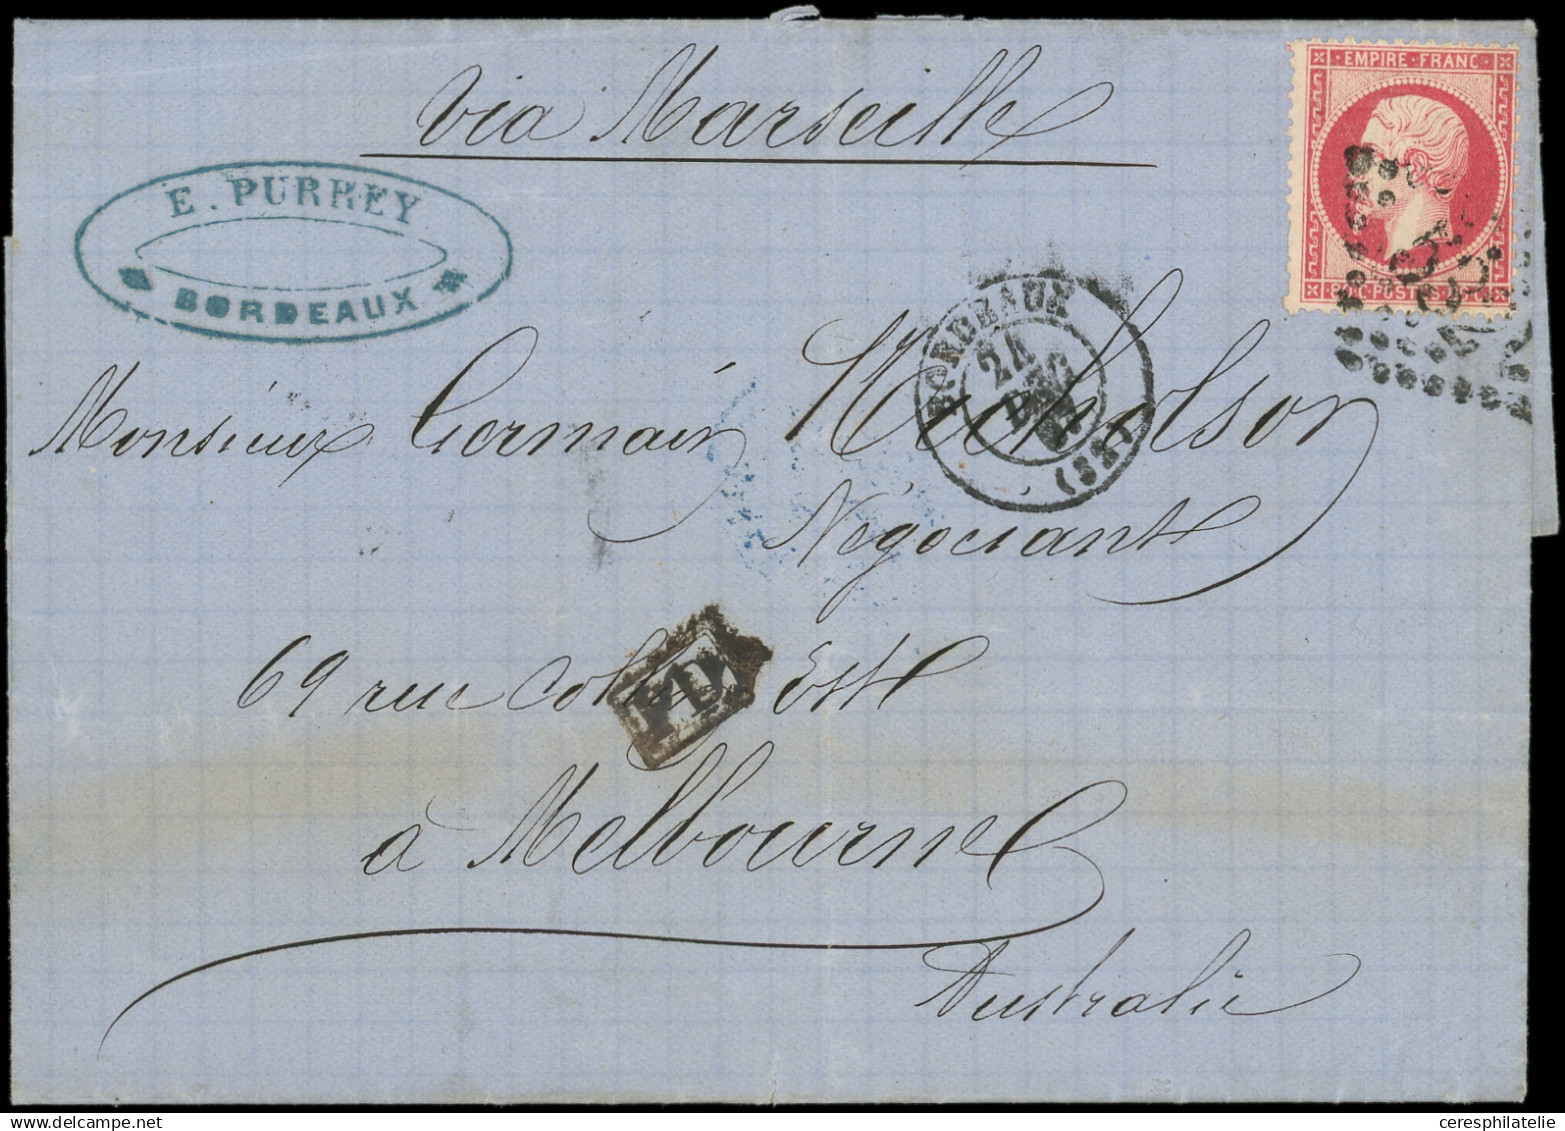 via Marseille
EMPIRE FRANC
E. PURREY
BORDEAUX
BORDEAUX
24
(32)
Monsieur Germain Nicholson
Négociant
69 rue Collins Est
PD
à Melbourne
Australie
ceresphilatelie